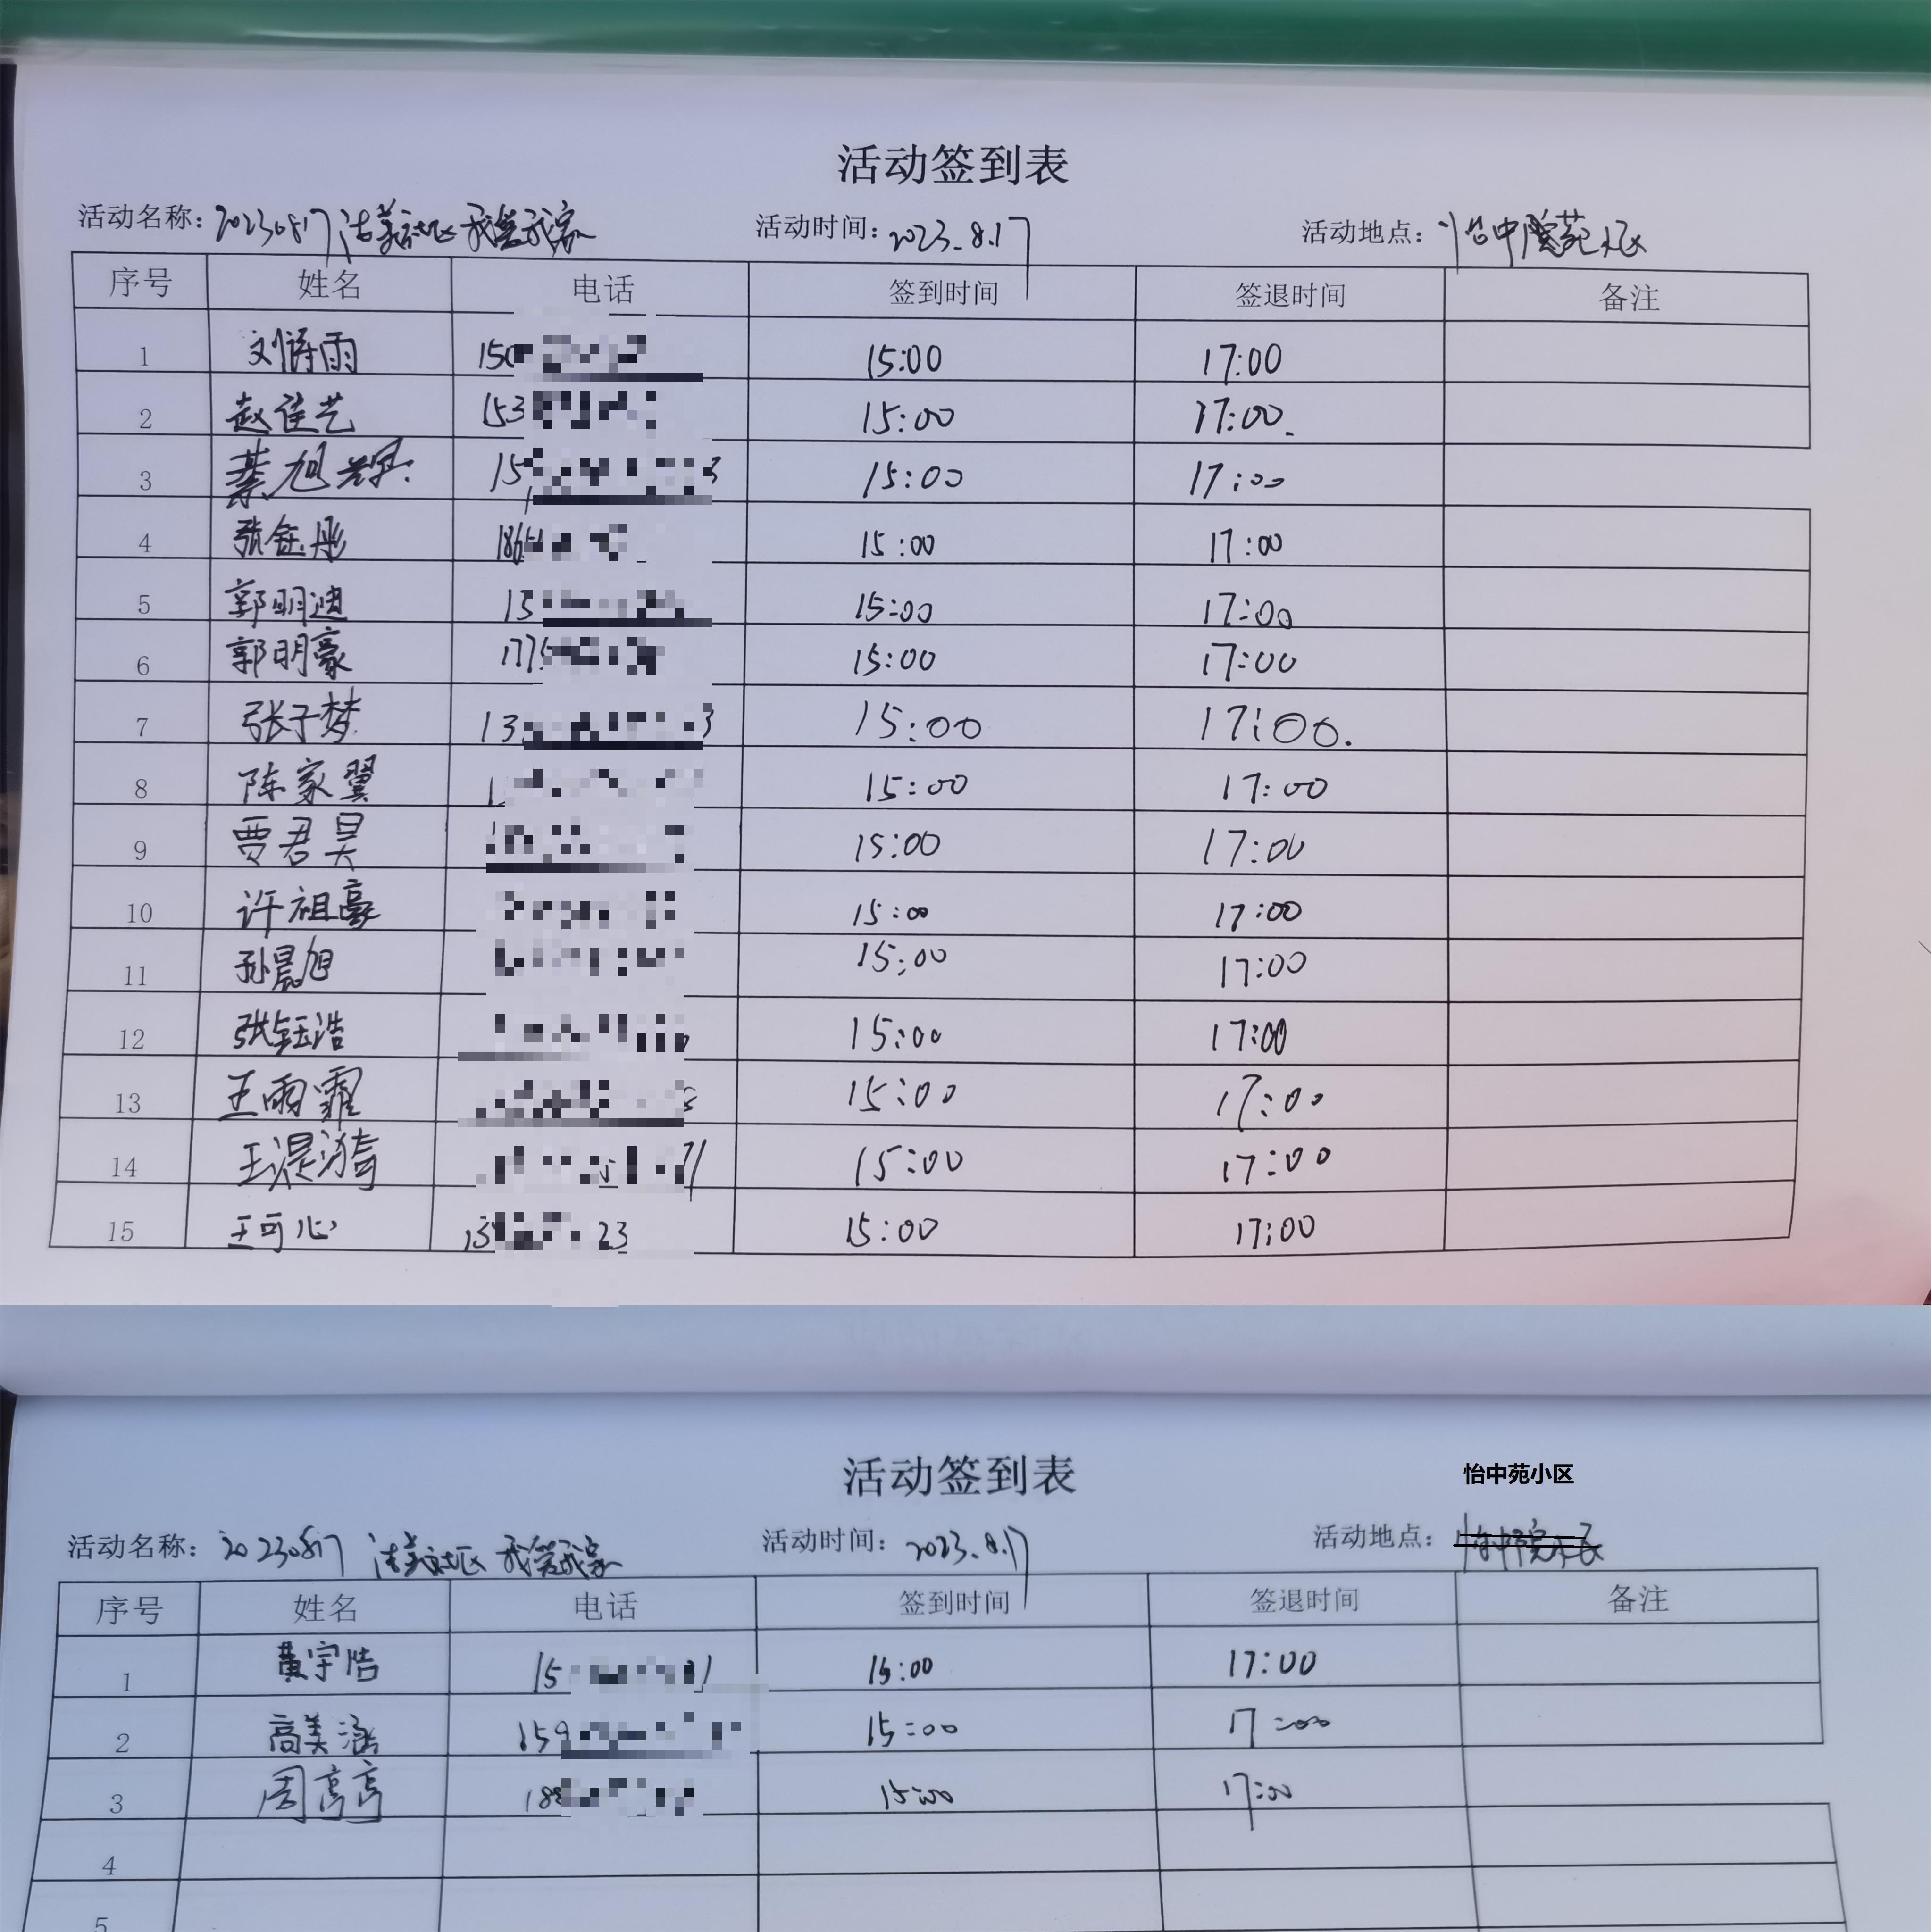 活动签到表
活动名称：20230817 洁美社区 我爱我家 活动时间：2023.8.17 活动地点：怡中苑小区
序号 姓名 电话 签到时间 签退时间 备注
1 刘诗雨 150 15:00 17:00
2 赵佳艺 153 15:00 17:00.
3 綦旭辉 15 3 15:00 17:00
4 张钰彤 186 15:00 17:00
5 郭明迪 15 15:00 17:00
6 郭明豪 177 15:00 17:00
7 张子梦 13 3 15:00 17:00.
8 陈家翼 1 15:00 17:00
9 贾君昊 15:00 17:00
10 许祖豪 15:00 17:00
11 孙晨旭 15:00 17:00
12 张钰浩 15:00 17:00
13 王雨霏 15:00 17:00
14 王湜漪 71 15:00 17:00
15 王可心 15 23 15:00 17:00
活动签到表
怡中苑小区
活动名称：20230817 洁美社区 我爱我家 活动时间：2023.8.17 活动地点：
序号 姓名 电话 签到时间 签退时间 备注
1 黄宇浩 15 1 15:00 17:00
2 高美涵 159 15:00 17:00
3 周亭亭 188 15:00 17:00
4
5